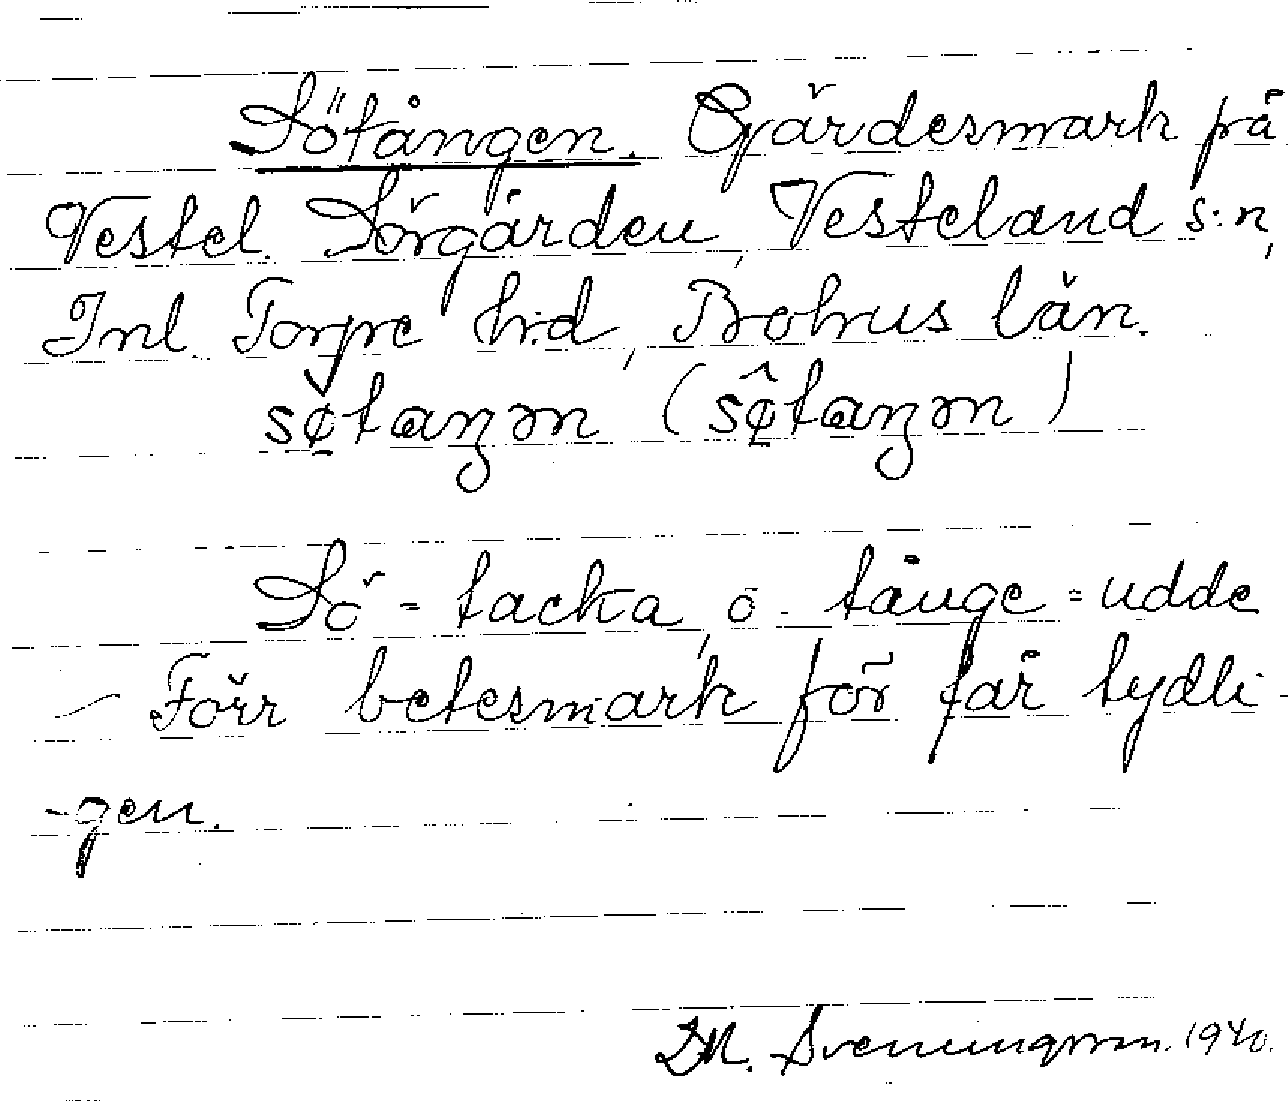 Sötången. Gärdesmark på
Vestel. Sörgården, Vesteland s:n,
Inl. Torpe h:d, Bohus län.
sø̂taŋən (sø̂taŋən)
Sö - tacka, o. tånge = udde
- Förr betesmark för får tydli-
-gen.
Svenungsson. 1940.